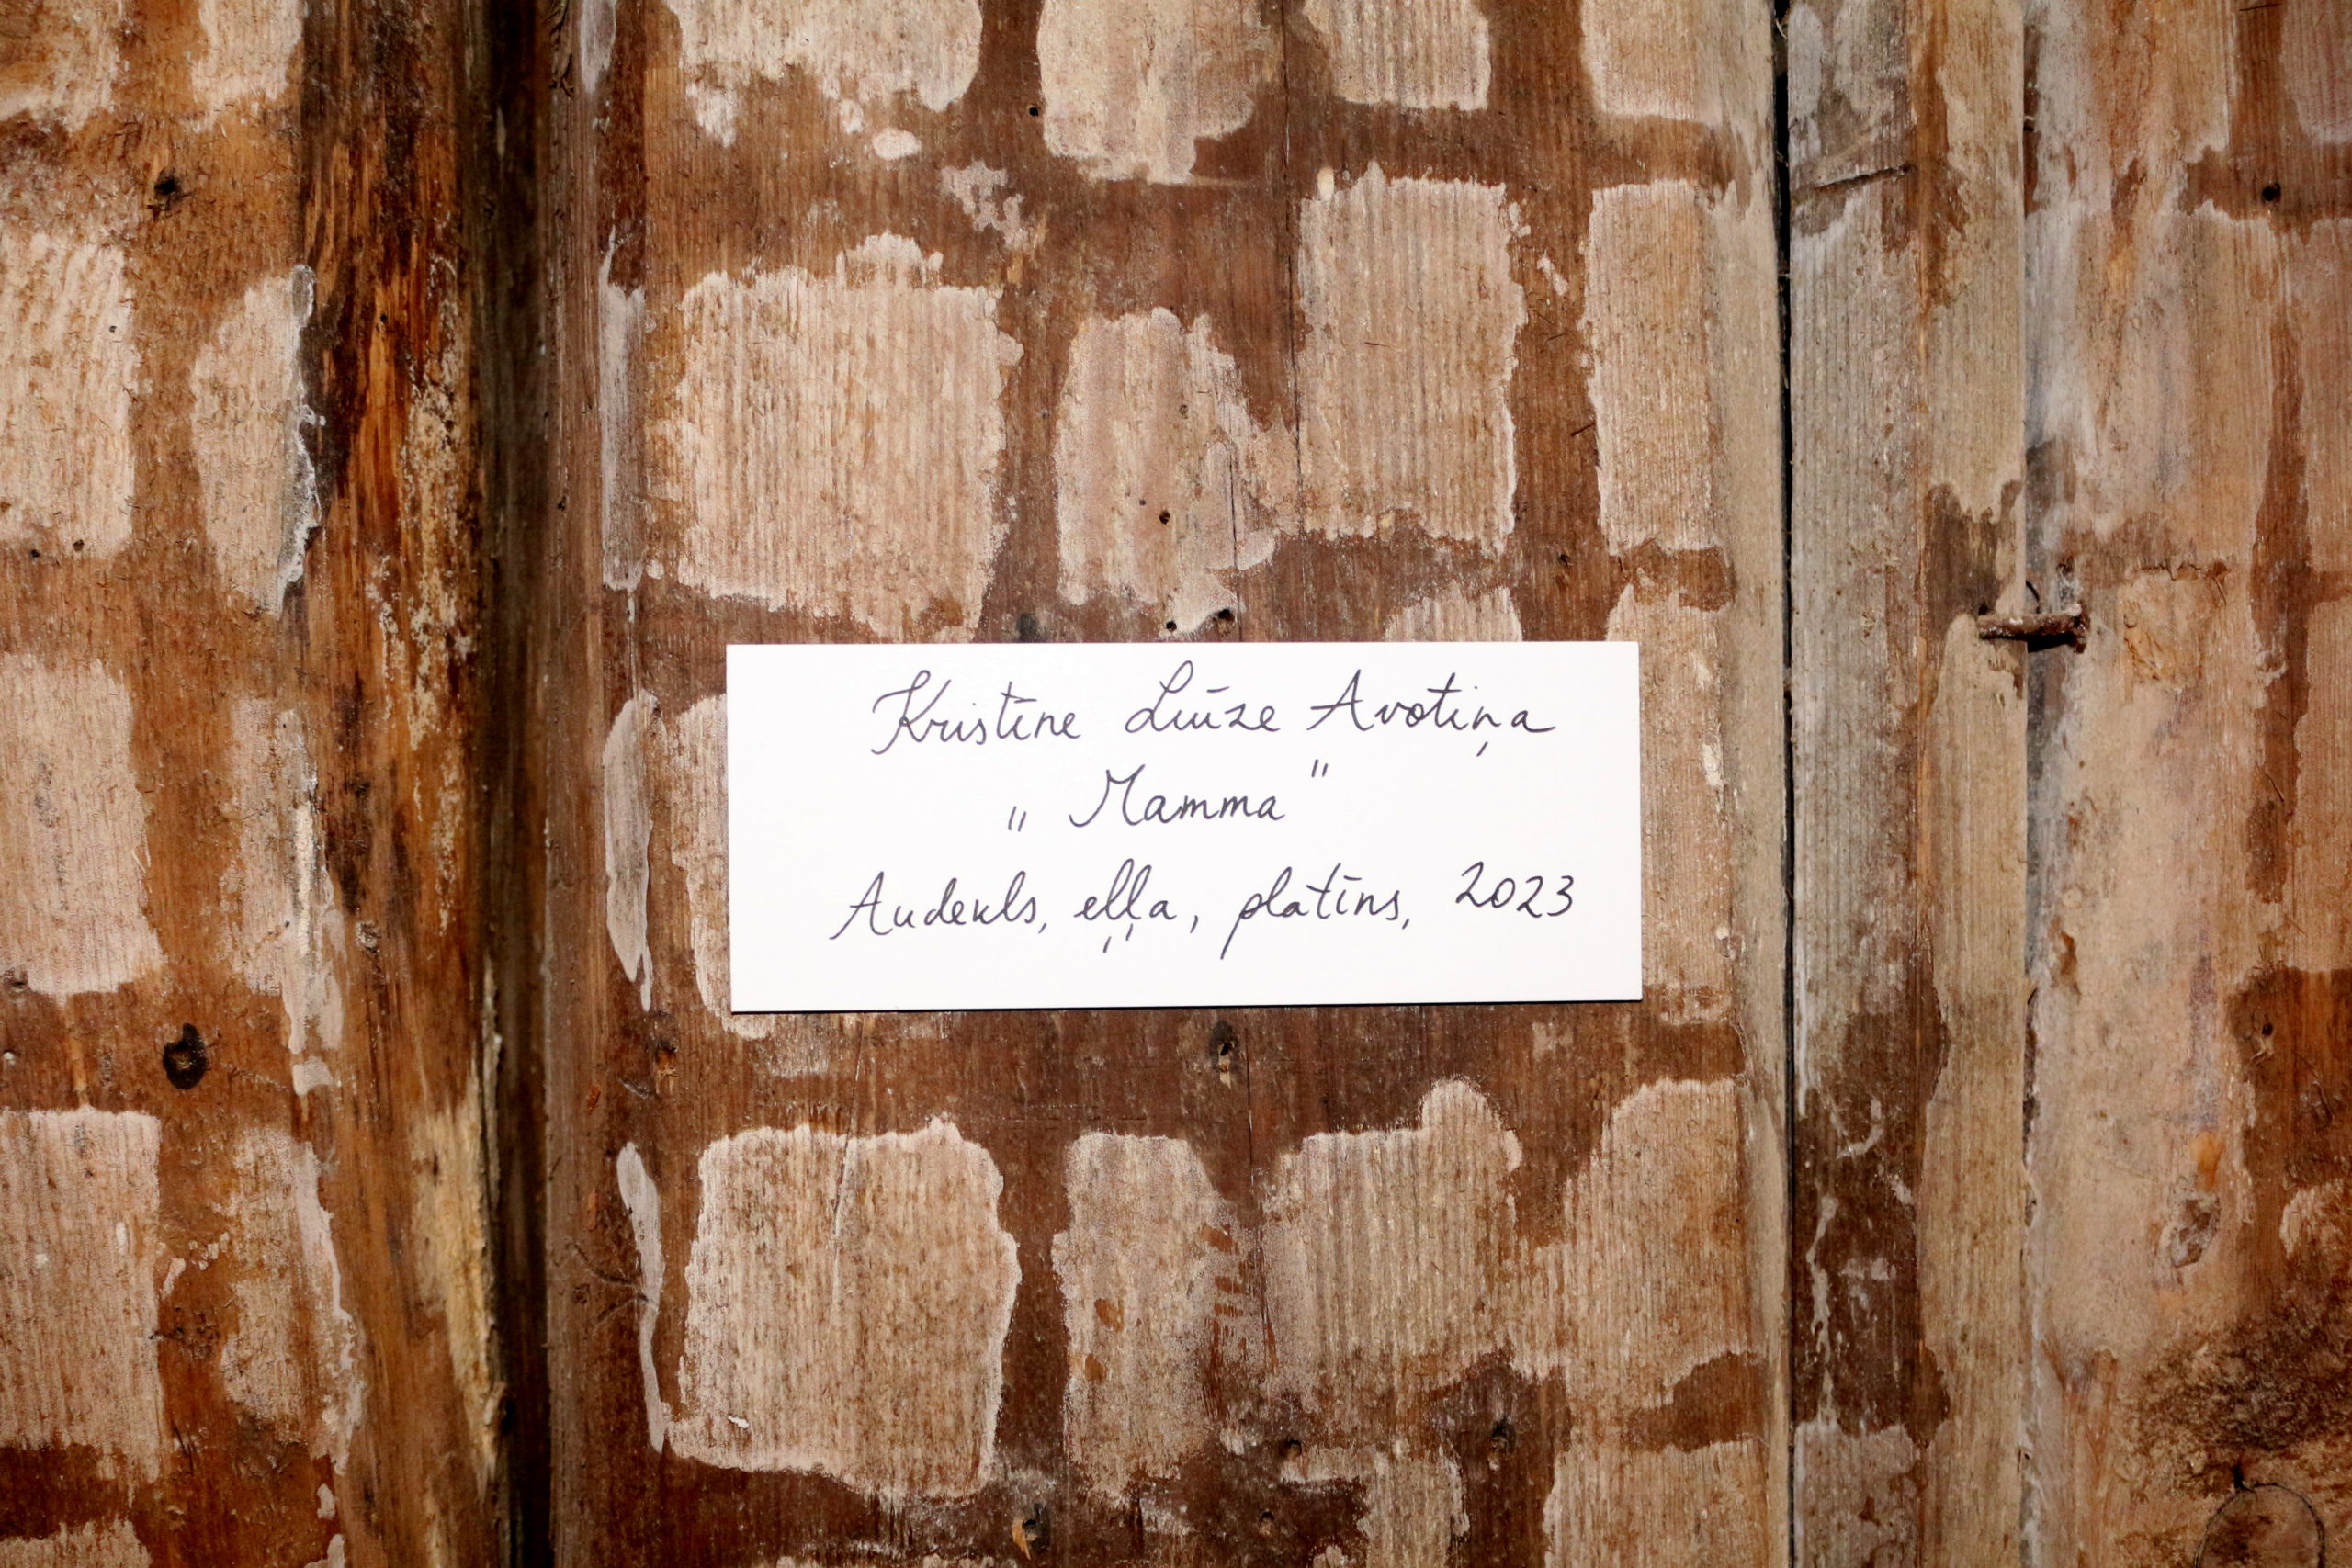 Kristīne Luīze Avotiņa
„Mamma"
Audekls, eļļa, platīns, 2023